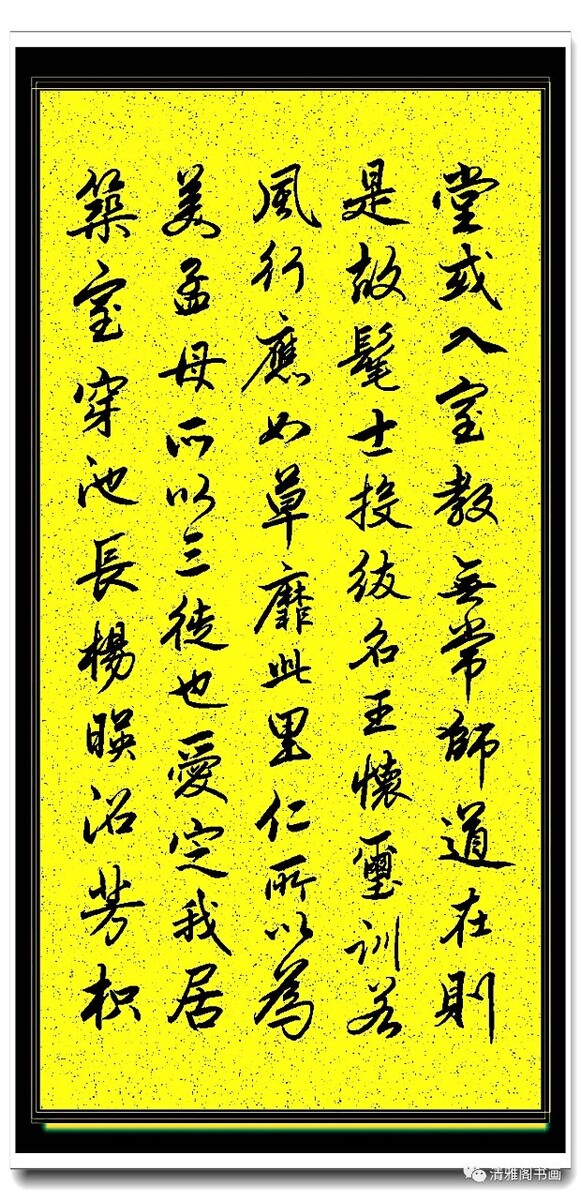 堂或入室教無常師道在則
是故髦士投紱名王懷璽訓若
風行應如草靡此里仁所以為
美孟母所以三徙也爰定我居
築室穿池長楊暎沼芳枳
清雅阁书画